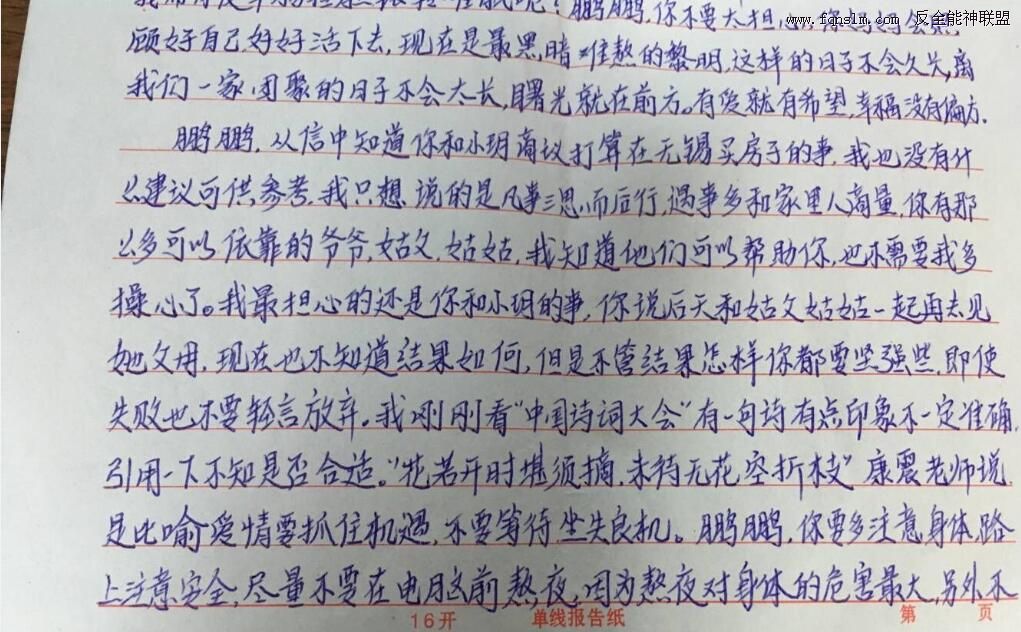 www.fqnslm.com 反全能神联盟
鹏鹏,你不要太担心,你妈妈会照
顾好自己好好活下去,现在是最黑暗难熬的黎明,这样的日子不会久长,离
我们一家团聚的日子不会太长,曙光就在前方。有爱就有希望,幸福没有偏方.
鹏鹏,从信中知道你和小玥商议打算在无锡买房子的事,我也没有什
么建议可供参考,我只想说的是凡事三思而后行,遇事多和家里人商量,你有那
么多可以依靠的爷爷,姑父,姑姑,我知道他们可以帮助你,也不需要我多
操心了。我最担心的还是你和小玥的事,你说后天和姑父姑姑一起再去见
她父母,现在也不知道结果如何,但是不管结果怎样你都要坚强些,即使
失败也不要轻言放弃。我刚刚看"中国诗词大会"有一句诗有点印象不一定准确,
引用一下不知是否合适。"花若开时堪须摘,未待无花空折枝"康震老师说
是比喻爱情要抓住机遇,不要等待坐失良机。鹏鹏,你要多注意身体,路
上注意安全,尽量不要在电脑前熬夜,因为熬夜对身体的危害最大,另外不
16开 单线报告纸 第 页